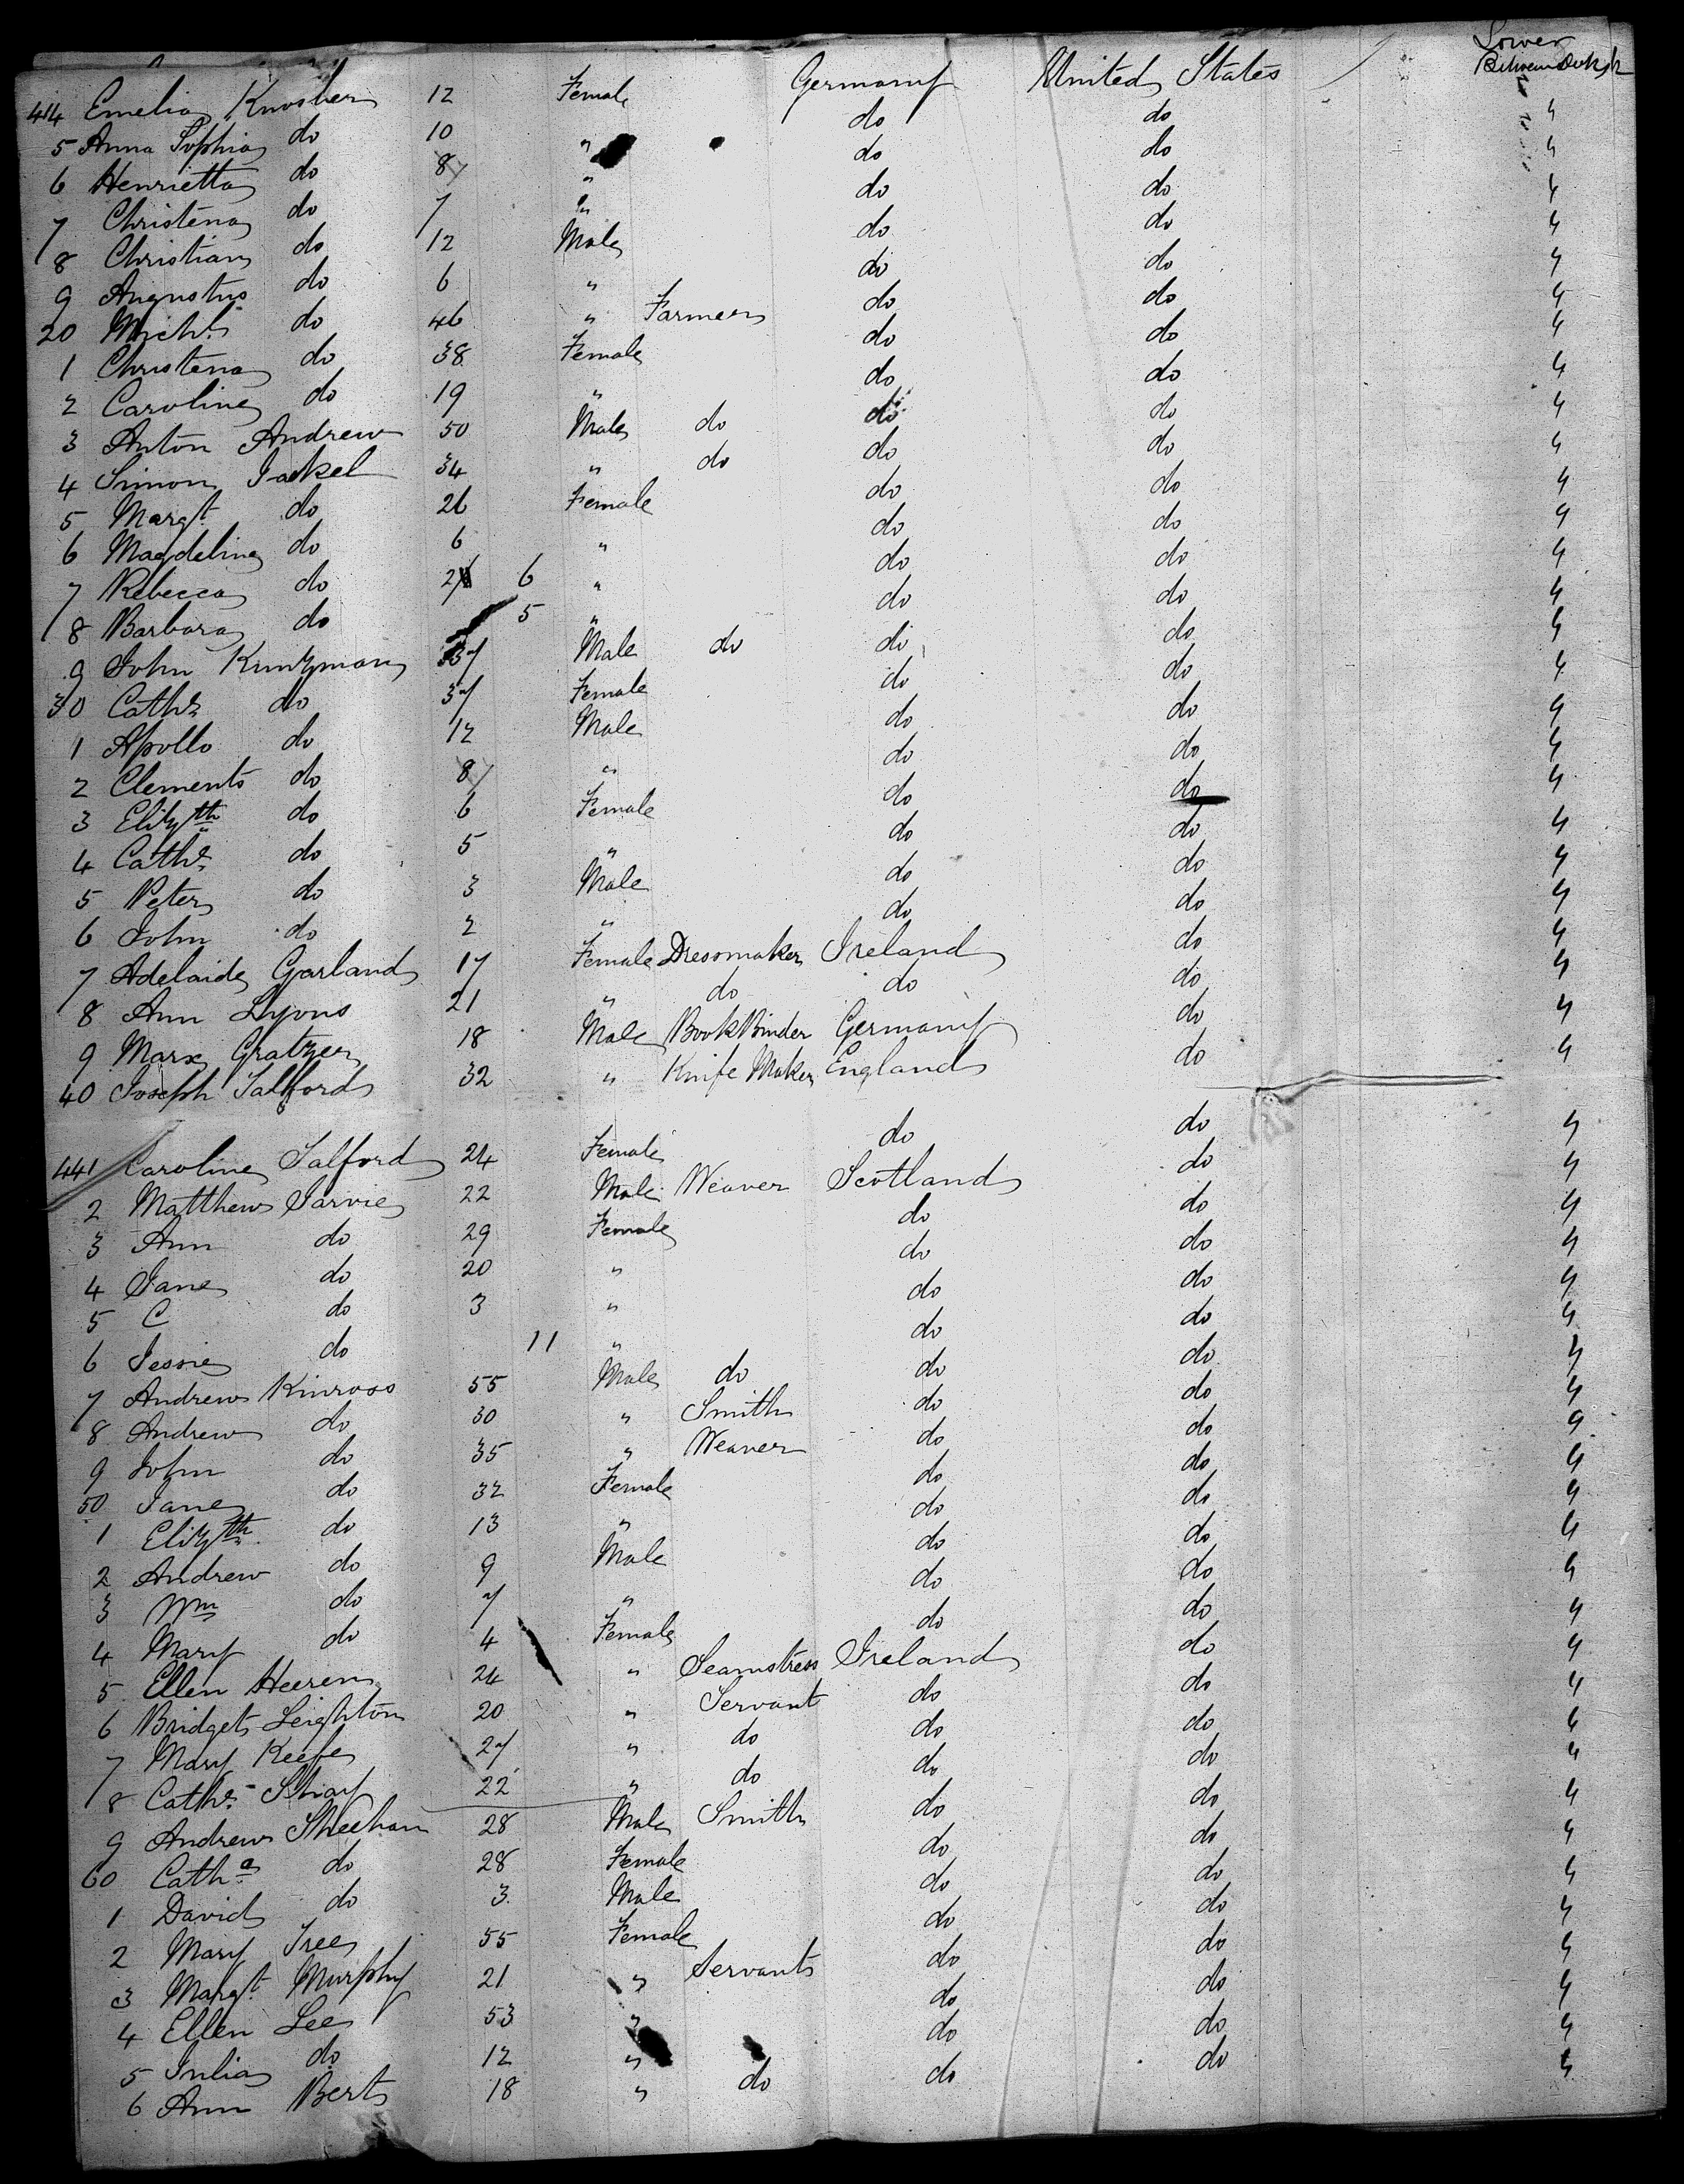 Lower
Between Decks
414 Emelia Knosher 12 Female Germany United States
5 Anna Sophia do 10 " do do "
6 Henrietta do 8 " do do "
7 Christena do 7 " do do "
8 Christian do 12 Male do do "
9 Augustus do 6 " do do "
20 Michl do 46 " Farmer do do "
1 Christena do 38 Female do do "
2 Caroline do 19 " do do "
3 Anton Andrew 50 Male do do do "
4 Simon Jackel 34 " do do do "
5 Margt do 26 Female do do "
6 Magdeline do 6 " do do "
7 Rebecca do 2 6 " do do "
8 Barbara do 5 " do do "
9 John Kuntzman 37 Male do do do "
30 Cathe do 37 Female do do "
1 Apollo do 12 Male do do "
2 Clements do 8 " do do "
3 Elizth do 6 Female do do "
4 Cathe do 5 " do do "
5 Peter do 3 Male do do "
6 John do 2 " do do "
7 Adelaide Garland 17 Female Dressmaker Ireland do "
8 Ann Lyons 21 " do do do "
9 Marx Gratzer 18 Male BookBinder Germany do "
40 Joseph Salford 32 " Knife Maker England do "
441 Caroline Salford 24 Female do do "
2 Matthew Jarvie 22 Male Weaver Scotland do "
3 Ann do 29 Female do do "
4 Jane do 20 " do do "
5 C do 3 " do do "
6 Jessie do 11 " do do "
7 Andrew Kinross 55 Male do do do "
8 Andrew do 30 " Smith do do "
9 John do 35 " Weaver do do "
50 Jane do 32 Female do do "
1 Elizth do 13 " do do "
2 Andrew do 9 Male do do "
3 Wm do 7 " do do "
4 Mary do 4 Female do do "
5 Ellen Heeren 24 " Seamstress Ireland do "
6 Bridget Leighton 20 " Servant do do "
7 Mary Keefe 27 " do do do "
8 Cathe Shay 22 " do do do "
9 Andrew Sheehan 28 Male Smith do do "
60 Catha do 28 Female do do "
1 David do 3 Male do do "
2 Mary Tree 55 Female do do "
3 Margt Murphy 21 " Servants do do "
4 Ellen Lee 53 " do do "
5 Julia do 12 " do do "
6 Ann Bert 18 " do do do "